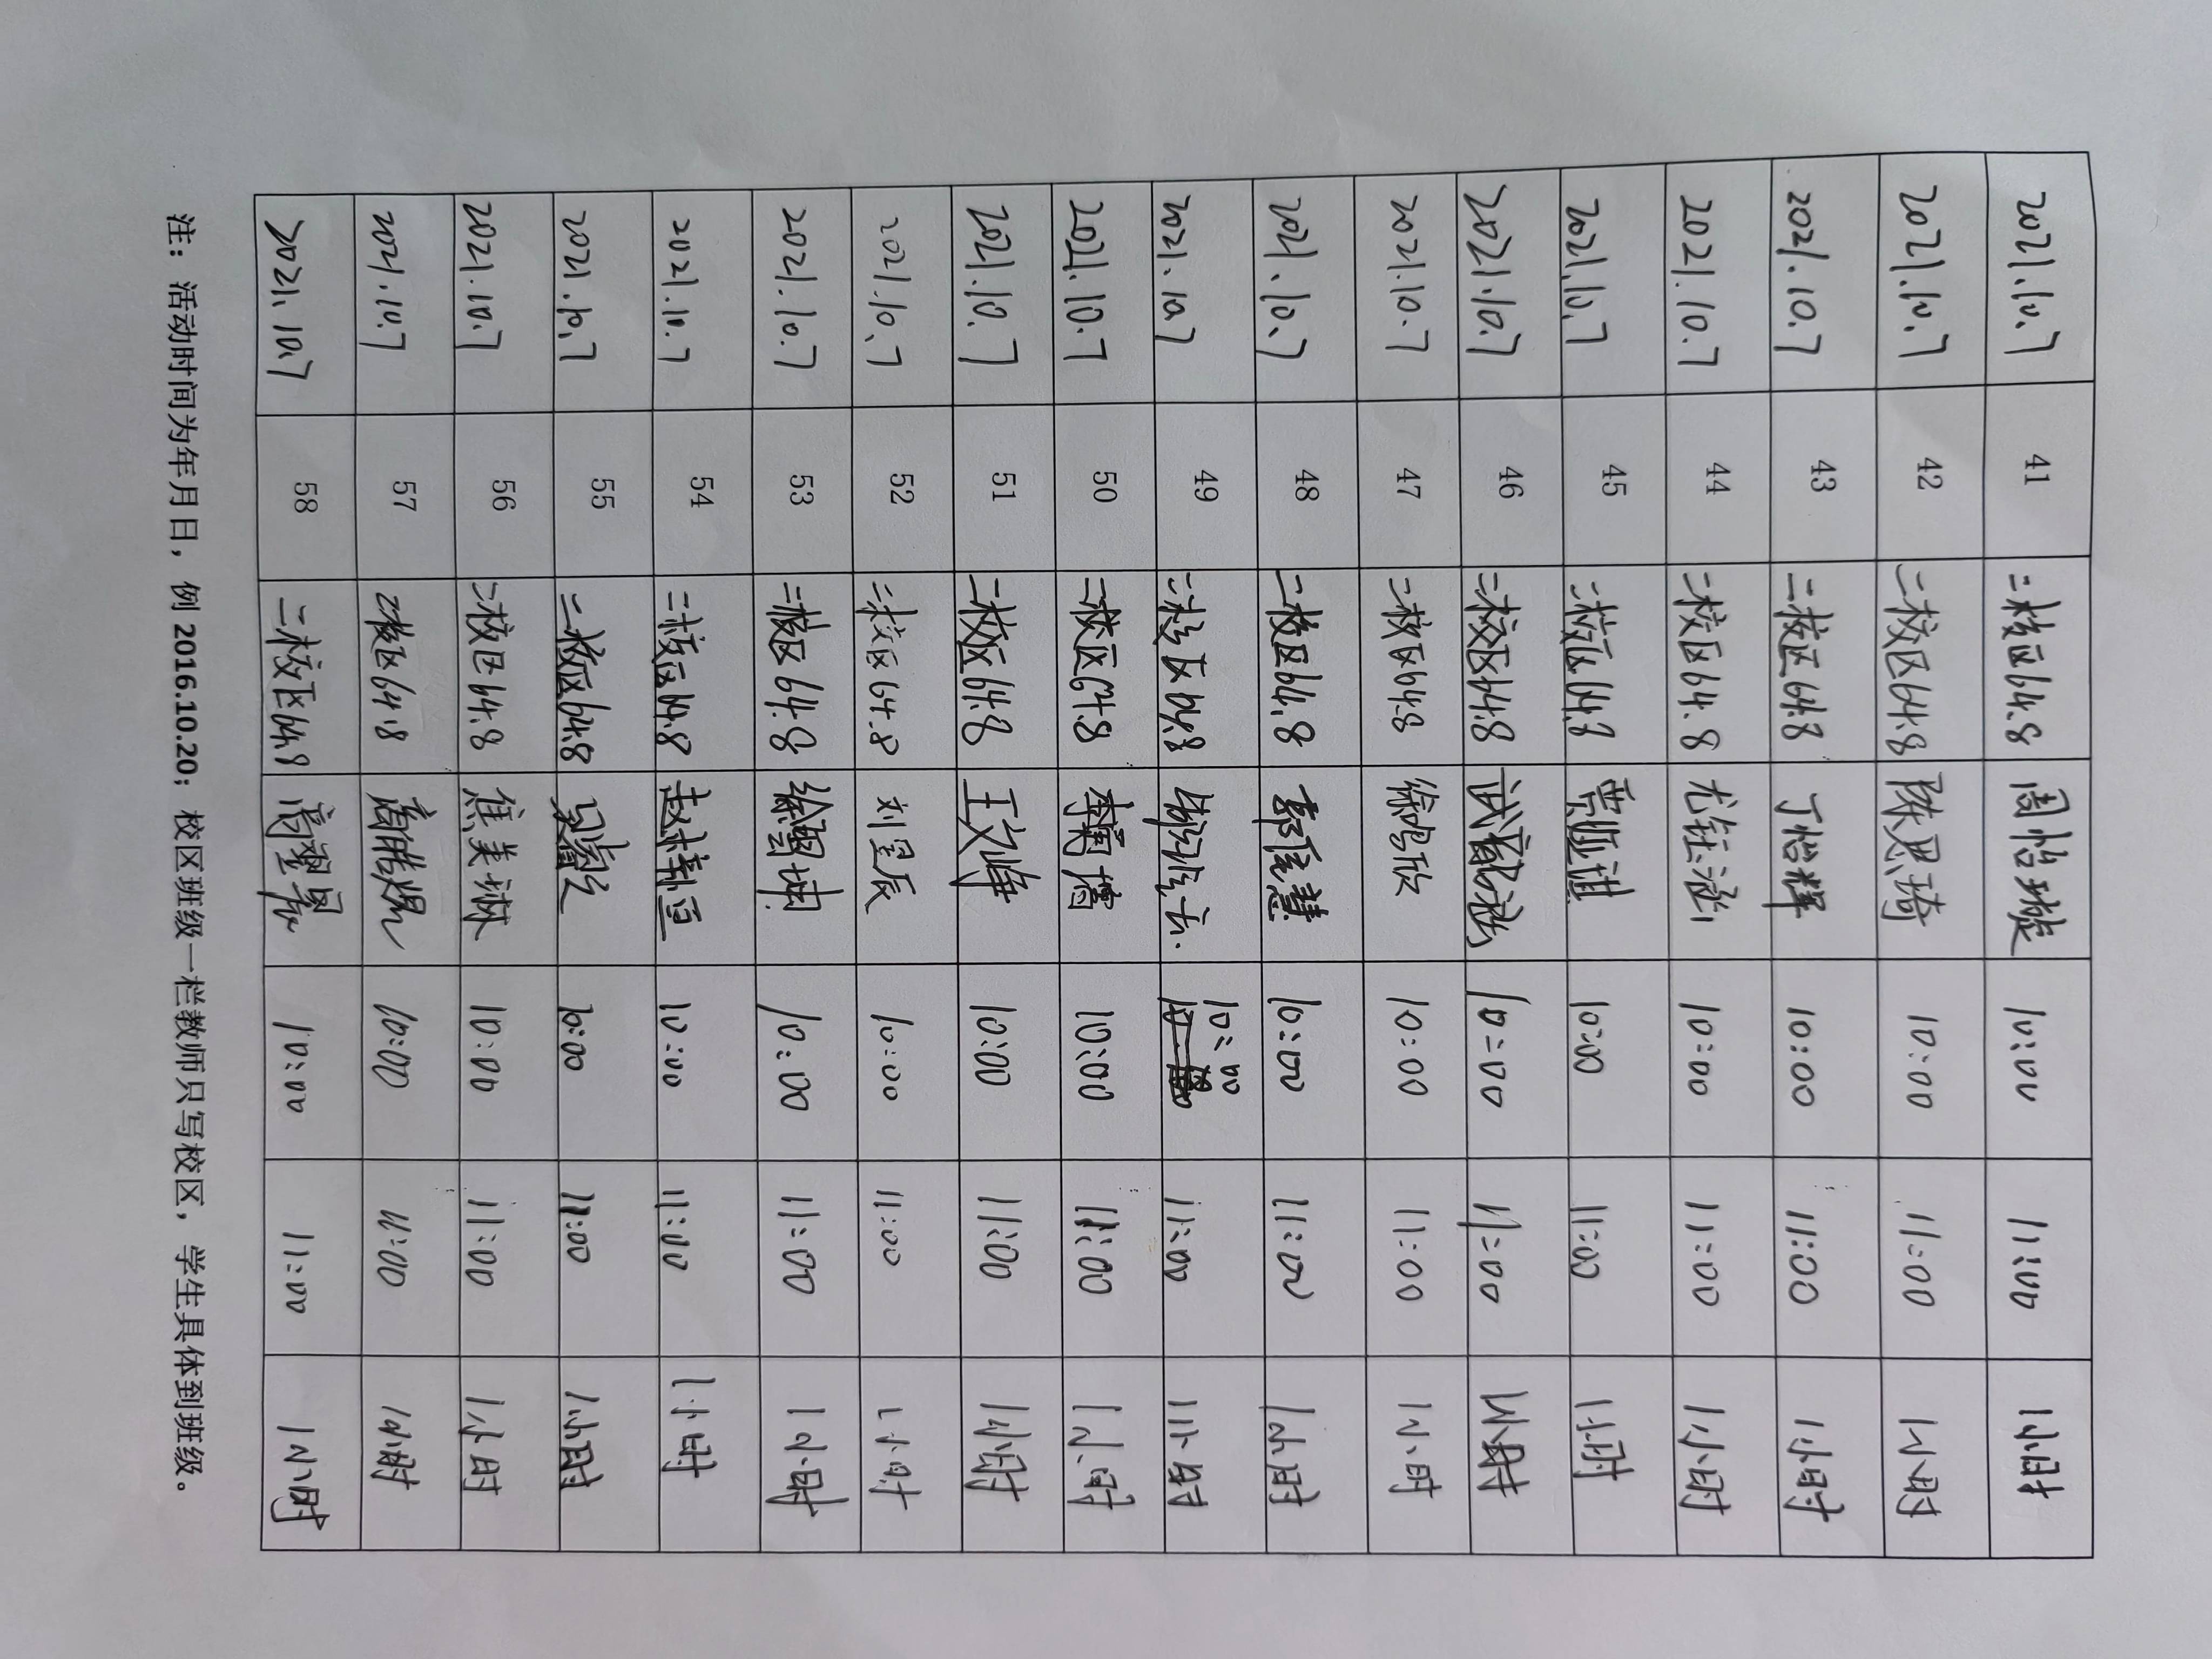 2021.10.7 41 二校区64.8 周怡璇 10:00 11:00 1小时
2021.10.7 42 二校区64.8 陈思琦 10:00 11:00 1小时
2021.10.7 43 二校区64.8 丁怡辉 10:00 11:00 1小时
2021.10.7 44 二校区64.8 尤钰涵 10:00 11:00 1小时
2021.10.7 45 二校区64.8 贾亚琪 10:00 11:00 1小时
2021.10.7 46 二校区64.8 10:00 11:00 1小时
2021.10.7 47 二校区64.8 徐鸣欣 10:00 11:00 1小时
2021.10.7 48 二校区64.8 郭佳慧 10:00 11:00 1小时
2021.10.7 49 二校区64.8 10:00 11:00 1小时
2021.10.7 50 二校区64.8 10:00 11:00 1小时
2021.10.7 51 二校区64.8 王文峥 10:00 11:00 1小时
2021.10.7 52 二校区64.8 刘星辰 10:00 11:00 1小时
2021.10.7 53 二校区64.8 10:00 11:00 1小时
2021.10.7 54 二校区64.8 10:00 11:00 1小时
2021.10.7 55 二校区64.8 10:00 11:00 1小时
2021.10.7 56 二校区64.8 焦美琳 10:00 11:00 1小时
2021.10.7 57 2校区64.8 10:00 11:00 1小时
2021.10.7 58 二校区64.8 10:00 11:00 1小时
注：活动时间为年月日，例 2016.10.20；校区班级一栏教师只写校区，学生具体到班级。